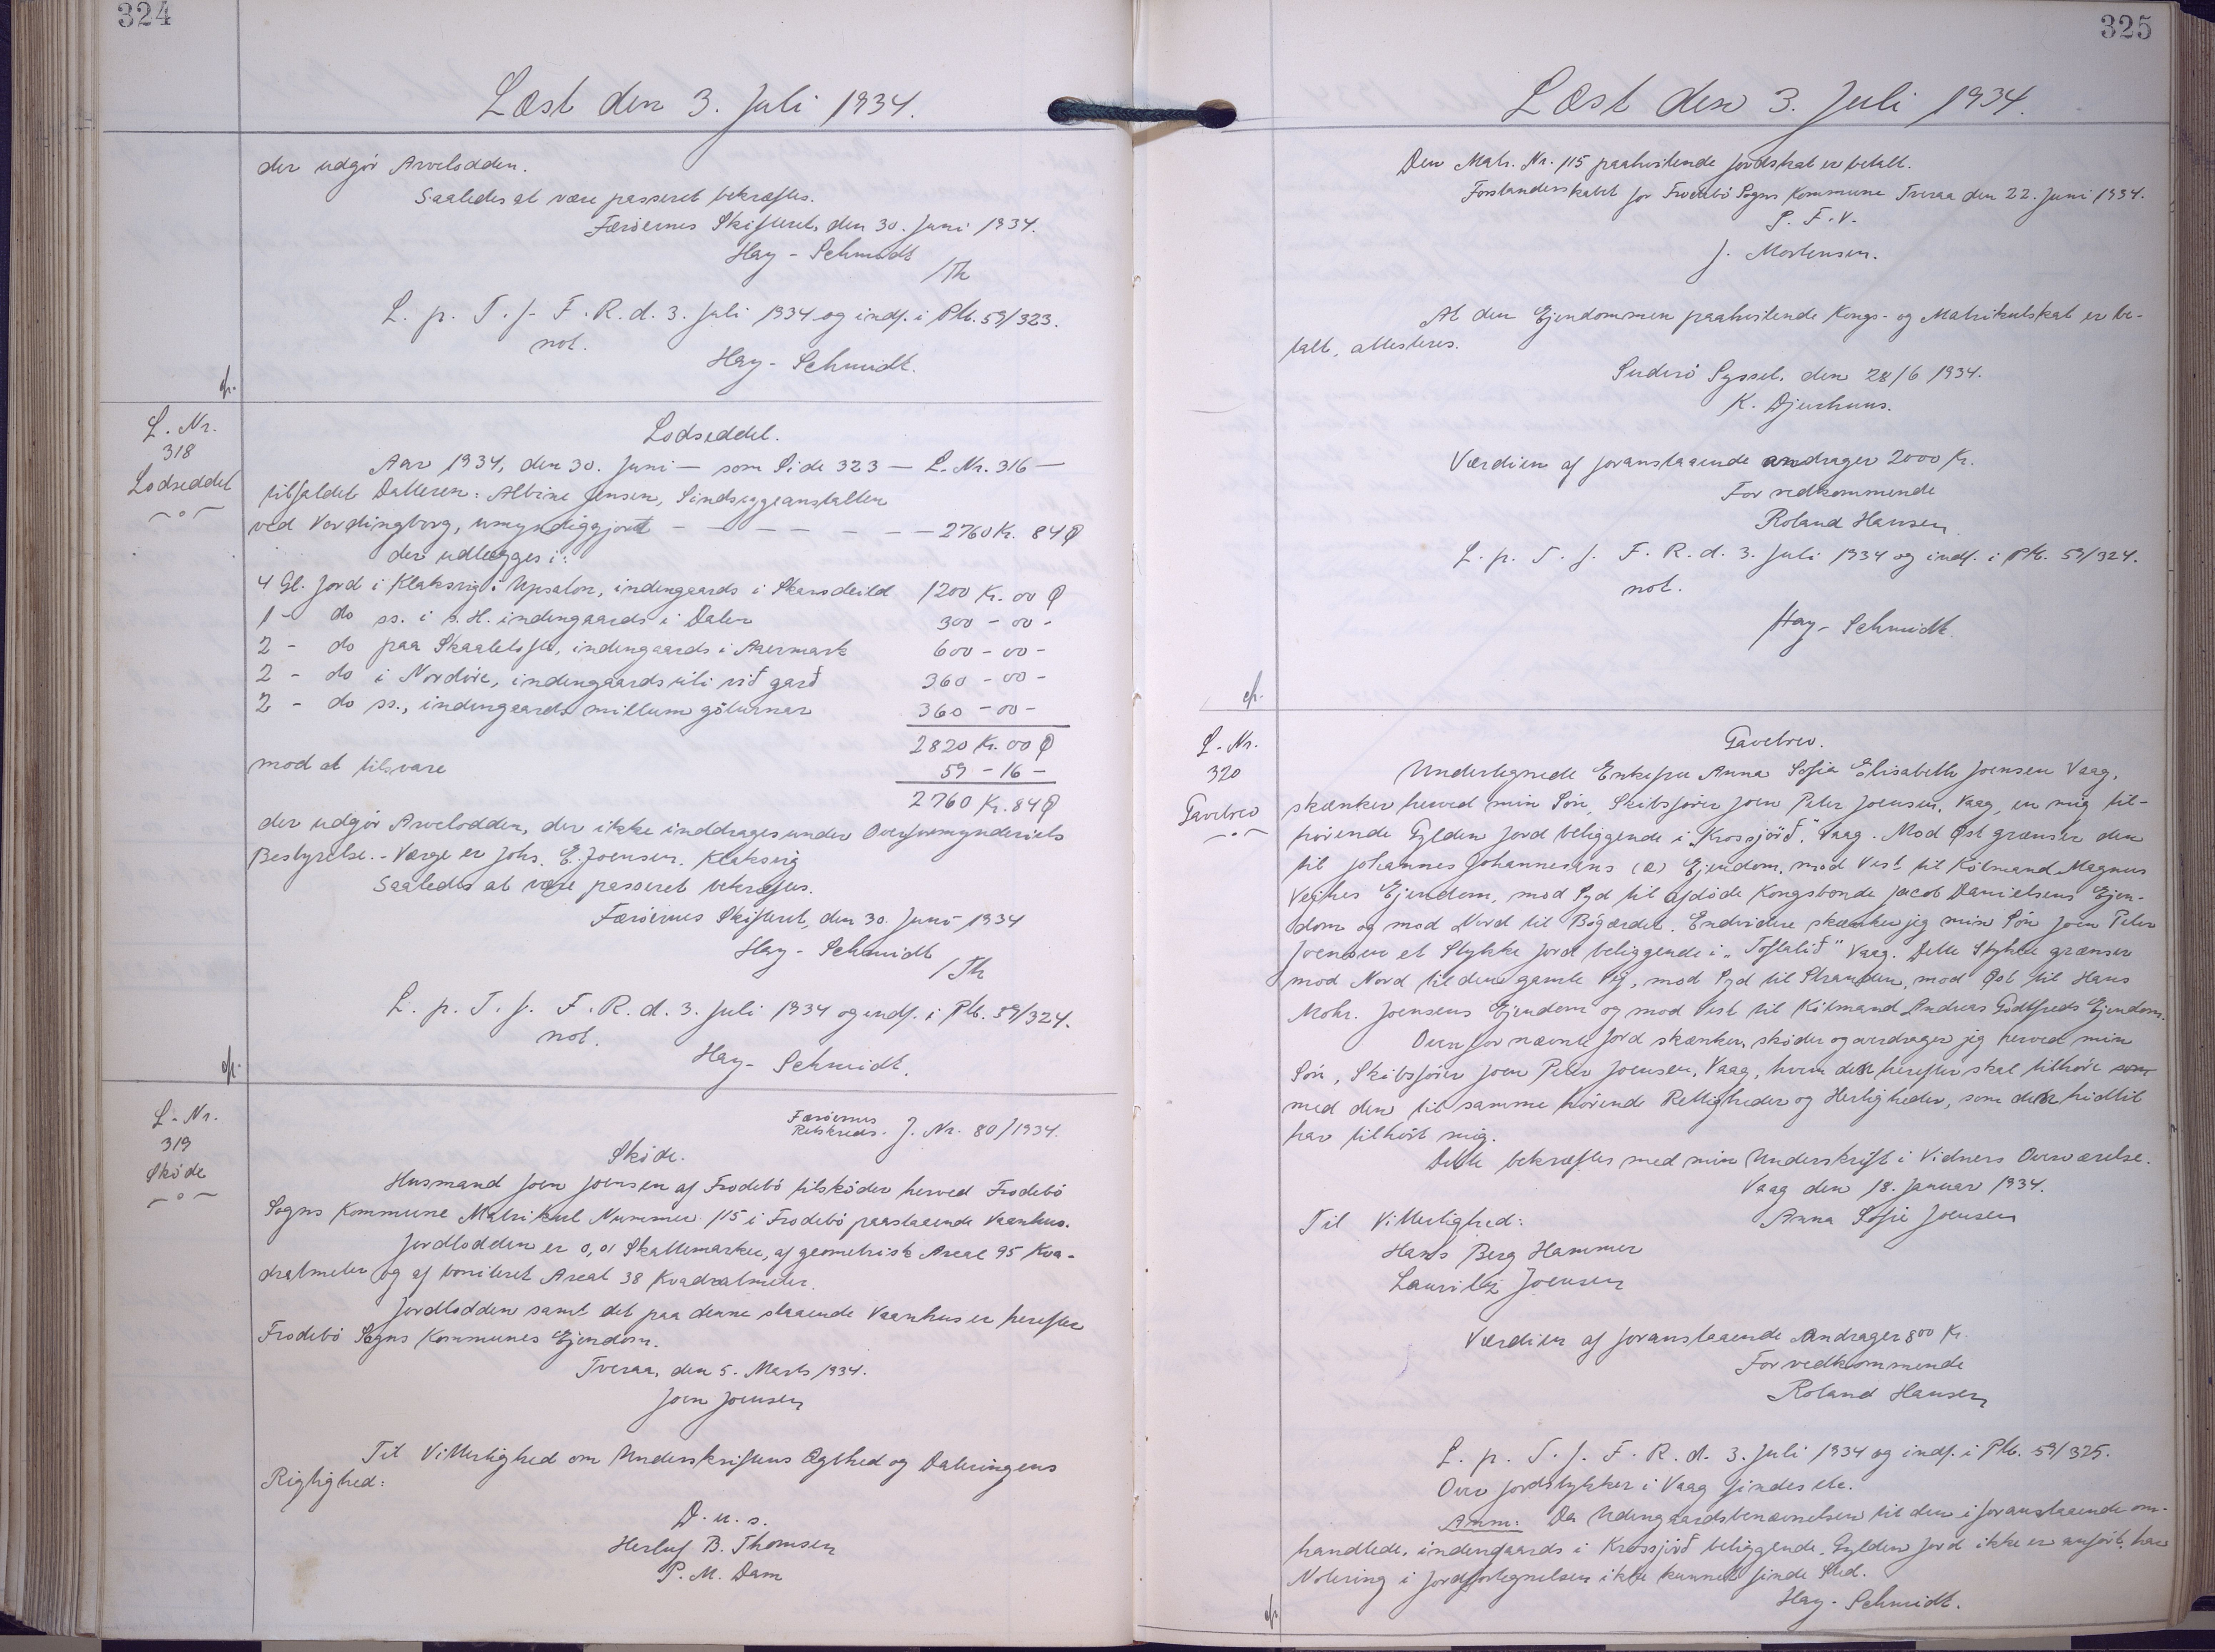 324
Læst den 3. Juli 1934.
der udgör Arvelodden.
Saaledes at være passeret bekræftes.
Færöernes Skifteret, den 30. Juni 1934.
Hay-Schmidt
/Th
L. p. T. f. F. R. d. 3. Juli 1934 og indf. i Ptb. 59/323.
not.
Hay-Schmidt.
L. Nr.
318
Lodseddel
Lodseddel.
Aar 1934, den 30. Juni — som Side 323 — L. Nr. 316 —
tilfaldet Datteren: Albine Jensen, Sindsygeanstalten
ved Vordingborg, umyndiggjort - — — — - — — 2760 Kr. 84 Ø
der udlægges i:
4 Gl. Jord i Klaksvig i Upsalon, indengaards i Skansdeild 1200 Kr. 00 Ø
1 - do ss. i s. H. indengaards i Daler 300 - 00 -
2 - do paa Skaaletofte, indengaards i Akermark 600 - 00 -
2 - do i Nordöre, indengaards uti við garð 360 - 00 -
2 - do ss., indengaards millum göturnar 360 - 00 -
2820 Kr. 00 Ø
mod at tilsvare 59 - 16 -
2760 Kr. 84 Ø
der udgör Arvelodden, der ikke inddrages under Overformynderiets
Bestyrelse. - Værge er Johs. E. Joensen, Klaksvig
Saaledes at være passeret bekræftes.
Færöernes Skifteret, den 30. Juni 1934
Hay-Schmidt
/Th
L. p. T. f. F. R. d. 3. Juli 1934 og indf. i Ptb. 59/324.
not.
Hay-Schmidt.
L. Nr.
319
Sköde
Færöernes
Retskreds. J. Nr. 80/1934.
Sköde.
Husmand Joen Joensen af Frodebö tilsköder herved Frodebö
Sogns Kommune Matrikul Nummer 115 i Frodebö paastaaende Vaanhus.
Jordlodden er 0,01 Skattemarker, af geometrisk Areal 95 Kva-
dratmeter og af boniteret Areal 38 Kvadratmeter.
Jordlodden samt det paa denne staaende Vaanhus er herefter
Frodebö Sogns Kommunes Ejendom.
Tveraa, den 5. Marts 1934.
Joen Joensen
Til Vitterlighed om Underskriftens Ægthed og Dateringens
Rigtighed:
D. u. s.
Herluf B. Thomsen
P. M. Dam
325
Læst den 3. Juli 1934.
Den Matr. Nr. 115 paahvilende Jordskat er betalt.
Forstanderskabet for Frodebö Sogns Kommune Tveraa den 22. Juni 1934.
P. F. V.
J. Mortensen.
At den Ejendommen paahvilende Kongs- og Matrikulskat er be-
talt, attesteres.
Suderö Syssel, den 28/6 1934.
K. Djurhuus.
Værdien af foranstaaende andrager 2000 Kr.
For vedkommende
Roland Hansen
L. p. T. f. F. R. d. 3. Juli 1934 og indf. i Ptb. 59/324.
not.
Hay-Schmidt.
L. Nr.
320
Gavebrev
Gavebrev.
Undertegnede Enkefru Anna Sofia Elisabeth Joensen Vaag,
skænker herved min Sön, Skibsförer Joen Peter Joensen, Vaag, en mig til-
hörende Gylden Jord beliggende i "Krossjörð", Vaag. Mod Øst grænser den
til Johannes Johannesens (a) Ejendom, mod Vest til Köbmand Magnus
Veihes Ejendom, mod Syd til afdöde Kongsbonde Jacob Danielsens Ejen-
dom og mod Nord til Bögærdet. Endvidere skænker jeg min Sön Joen Peter
Joensen et Stykke Jord beliggende i "Toftalið" Vaag. Dette Stykke grænser
mod Nord til den gamle Vej, mod Syd til Stranden, mod Øst til Hans
Mohr. Joensens Ejendom og mod Vest til Köbmand Andreas Godtfreds Ejendom.
Ovenfor nævnte Jord skænker, sköder og overdrager jeg herved min
Sön, Skibsförer Joen Peter Joensen, Vaag, hvem den herefter skal tilhöre som
med den til samme hörende Rettigheder og Herligheder, som den hidtil
har tilhört mig.
Dette bekræftes med min Underskrift i Vidners Overværelse.
Vaag den 18. Januar 1934.
Til Vitterlighed: Anna Sofie Joensen
Hans Berg Hammer
Lauritz Joensen
Værdien af foranstaaende Andrager 800 Kr.
For vedkommende
Roland Hansen
L. p. T. f. F. R. d. 3. Juli 1934 og indf. i Ptb. 59/325.
Over Jordstykker i Vaag findes etc.
Anm: Da Udengaardsbenævnelsen til den i foranstaaende om-
handlede, indengaards i Krossjörð beliggende, Gylden Jord ikke er anfört, har
Notering i Jordfortegnelsen ikke kunnet finde Sted.
Hay-Schmidt.